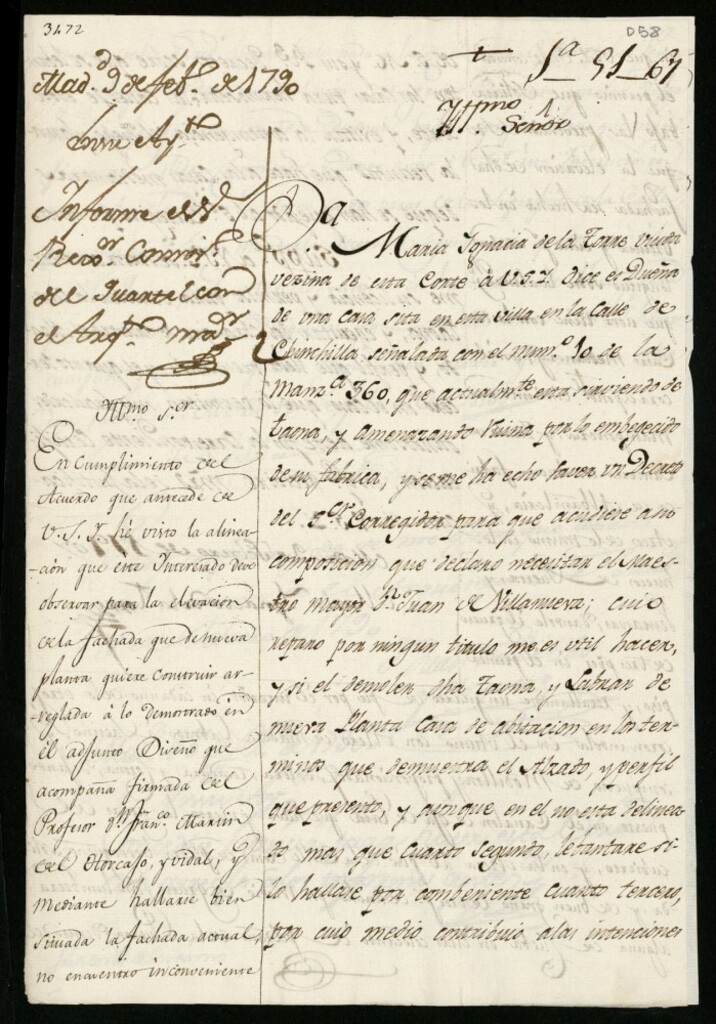 3472
D58
1ª 51-67
Madd 9 de febo de 1790
Informe el Sr
Rexor Comiso
del Quartel con
el Arqto mayr
Yllmo Sor
En cumplimiento del
Acuerdo que antecede de
V.S.Y. hé visto la alinea-
-ación que este Interesado deve
observar para la elevacion
de la fachada que de nueva
planta quiere construir ar-
reglada à lo demostrado en
él adjunto Diseño que
acompaña firmada del
Profesor dn Franco Martin
del Otorcaso, y vidal, y
mediante hallarse bien
situada la fachada actual,
no encuentro inconveniente
Yllmo Señor
Da Maria Ygnacia de la Torre viuda
vezina de esta Corte à V.S.Y. Dice es Dueña
de una casa sita en esta villa en la Calle de
Chinchilla señalada con el numo 10 de la
Manza 360, que actualmte esta sirviendo de
taona, y amenazando Ruina por lo embegecido
de su fabrica, y se me ha echo saver un Decreto
del Sor Corregidor para que acudiese a su
composicion que declaro necesitar el Maes-
tro mayor Dn Juan de Villanueva; cuio
reparo por ningun titulo me es util hacer,
y si el demoler dha Taona, y Labrar de
nueva Planta Casa de abitacion en los ter-
minos que demuestra el Alzado, y perfil
que presento, y aunque en el no esta delinea-
do mas que Cuarto segundo, lebantare si-
lo hallase por combeniente cuarto tercero,
por cuio medio contribuio a las intenciones